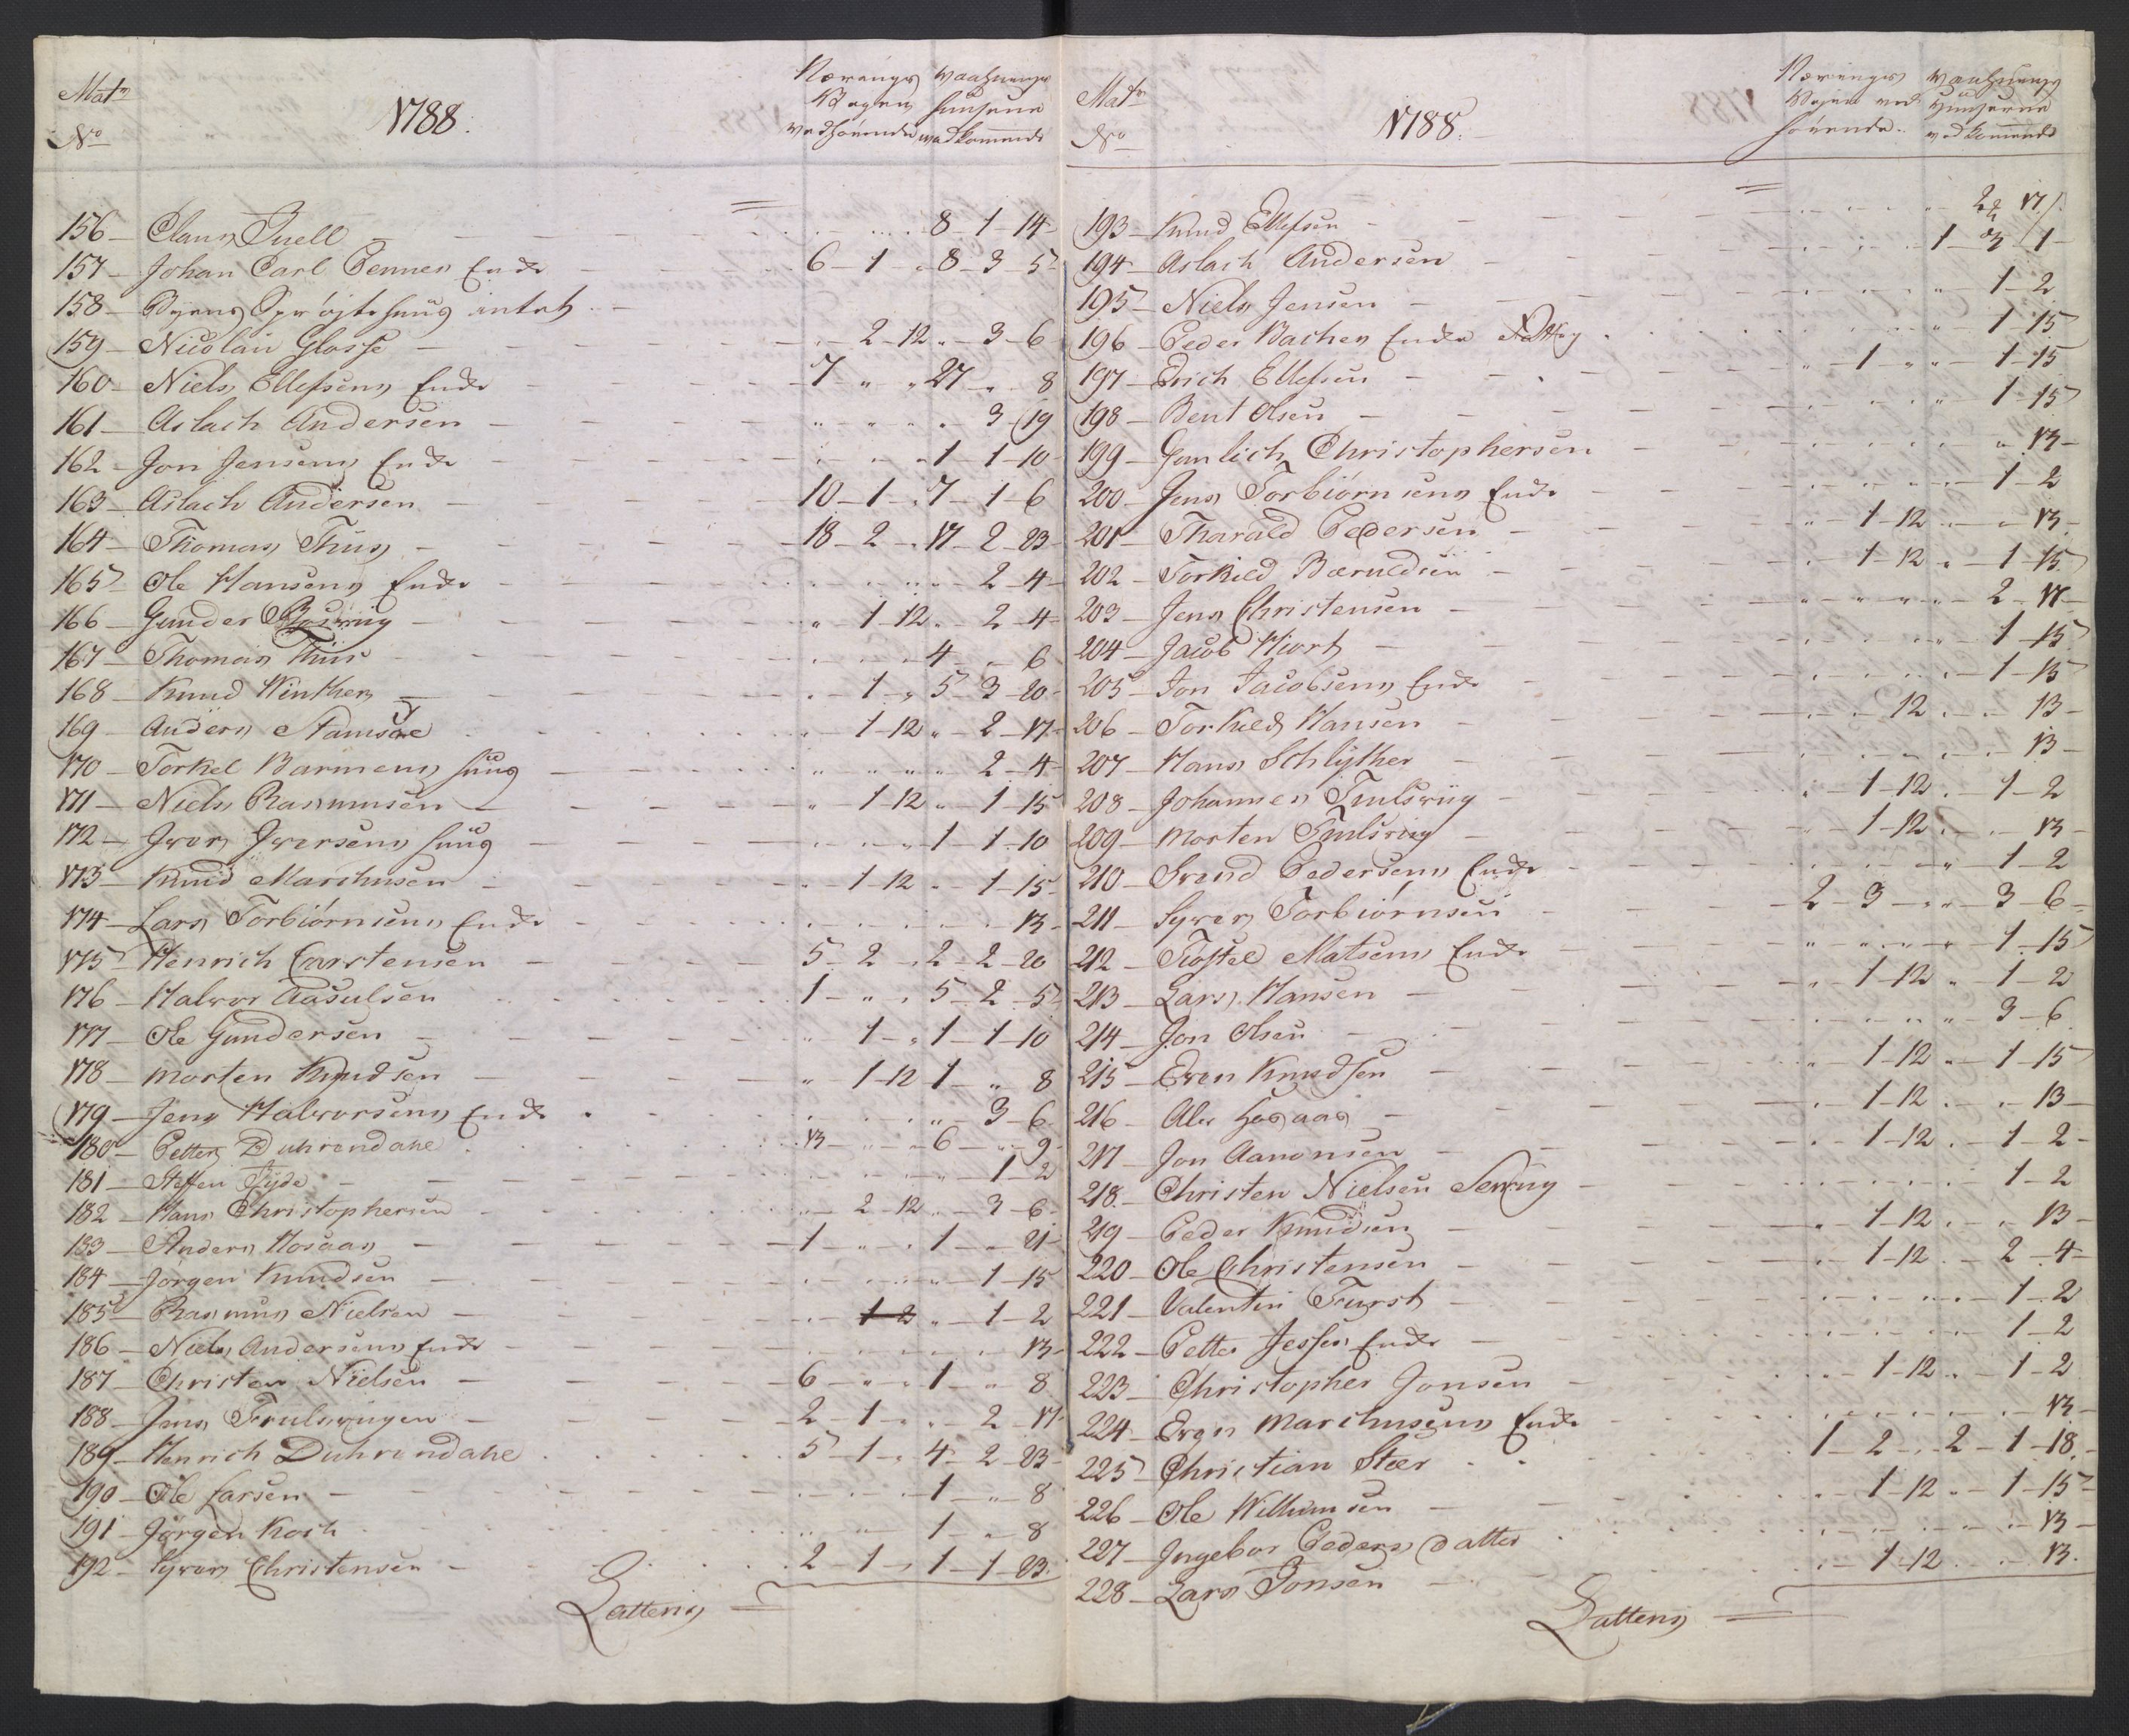 Matr
No
1788.
Nærings
Brugen
vedhørende
Vaahnings
huusene
vedkommende
156 – Claus Buell – 8 – 1 – 14
157 – Johan Carl Enke – 6 – 1 – „ 8 – 3 – 5
158 – Byens Sprøjtehuus intet
159 – Nicolai Glosse – 2 – 12 „ – 3 – 6
160 – Niels Ellefsens Enke – 7 „ „ 27 – „ 8
161 – Aslach Andersen – 3 – 19
162 – Jon Jensens Enke – 1 – 1 – 10
163 – Aslach Andersen – 10 – 1 – 7 – 1 – 6
164 – Thomas Thus – 18 – 2 – „ 17 – 2 – 23
165 – Ole Hansens Enke – 2 – 4
166 – Gunder – „ 1 – 12 „ – 2 – 4
167 – Thomas Thus – 4 – „ 6
168 – Knud Winther – 1 – „ 5 – 3 – 20
169 – Anders – „ 1 – 12 „ – 2 – 17
170 – Torkel Barmens huus – 2 – 4
171 – Niels Rasmusen – „ 1 – 12 „ – 1 – 15
172 – Iver Iversens huus – 1 – 1 – 10
173 – Knud Marchusen – 1 – 12 „ – 1 – 15
174 – Lars Torbiørnsens Enke – 13
175 – Henrich Carstensen – 5 – 2 – „ 2 – 2 – 20
176 – Halvor Aasulsen – 1 – „ „ 5 – 2 – 5
177 – Ole Gundersen – „ 1 – „ 1 – 1 – 10
178 – Morten Knudsen – „ 1 – 12 1 – „ 8
179 – Jens Halvorsens Enke – 3 – 6
180 – Petter Duhrendahl – 13 – 6 – „ 9
181 – Steffen – 1 – 2
182 – Hans Christophersen – 2 – 12 „ – 3 – 6
183 – Anders Hosaas – 1 – „ „ 1 – „ 21
184 – Jørgen Knudsen – 1 – 15
185 – Rasmus Nielsen – 1 2 „ – 1 – 2
186 – Niels Andersens Enke – 13
187 – Christen Nielsen – 6 – „ „ 1 – „ 8
188 – Jens – 2 – 1 – „ „ – 2 – 17
189 – Henrich Duhrendahl – 5 – 1 – „ 4 – 2 – 23
190 – Ole Larsen – 1 – „ 8
191 – Jørgen Koch – 1 – „ 8
192 – Syver Christensen – 2 – 1 – „ 1 – 1 – 23
Latteris
Matr
No
1788.
Nærings
Brugen ved
hørende
Vaahnings
huuserne
vedkommende
193 – Knud Ellefsen – 2 17
194 – Aslach Andersen – 1 – 3 1
195 – Niels Jensen – 1 – 2
196 – Peder Bachen Enke – 1 – 15
197 – Erich Ellefsen – „ – 1 „ „ – 1 – 15
198 – Bent Olsen – 1 – 15
199 – Christophersen – 13
200 – Jens Torbiørnsens Enke – 1 – 2
201 – Tharald Pedersen – 1 – 12 „ – „ 13
202 – Torkild – 1 – 12 „ – 1 – 15
203 – Jens Christensen – 2 – 17
204 – Jacob Hiort – 1 – 15
205 – Jon Jacobsens Enke – 1 – 15
206 – Torkild Hansen – 12 „ – 13
207 – Hans Schlÿther – 13
208 – Johannes – 1 – 12 „ – 1 – 2
209 – Morten – 1 – 12 – 13
210 – Svend Pedersens Enke – 1 – 2
211 – Syver Torbiørnsen – 2 – 3 – „ „ – 3 – 6
212 – Matsens Enke – 1 – 15
213 – Lars Hansen – 1 – 12 „ – 1 – 2
214 – Jon Olsen – 3 – 6
215 – Even Knudsen – 1 – 12 „ – 1 – 15
216 – Ale – 1 – 12 – 13
217 – Jon Aanonsen – 1 – 12 „ – 1 – 2
218 – Christen Nielsen – 1 – 2
219 – Peder Knudsen – 1 – 12 – 13
220 – Ole Christensen – 1 – 12 – 2 – 4
221 – Valentin Furst – 1 – 2
222 – Petter Jesses Enke – 1 – 2
223 – Christopher Jonsen – 1 – 12 „ – 1 – 2
224 – Marchusens Enke – 13
225 – Christian Steer – 1 – 2 – „ 2 – 1 – 18
226 – Ole Willumsen – 1 – 12 „ – 1 – 15
227 – Ingebor Peders datter – 13
228 – Lars Tonsen – 1 – 12 – 13
Latteris